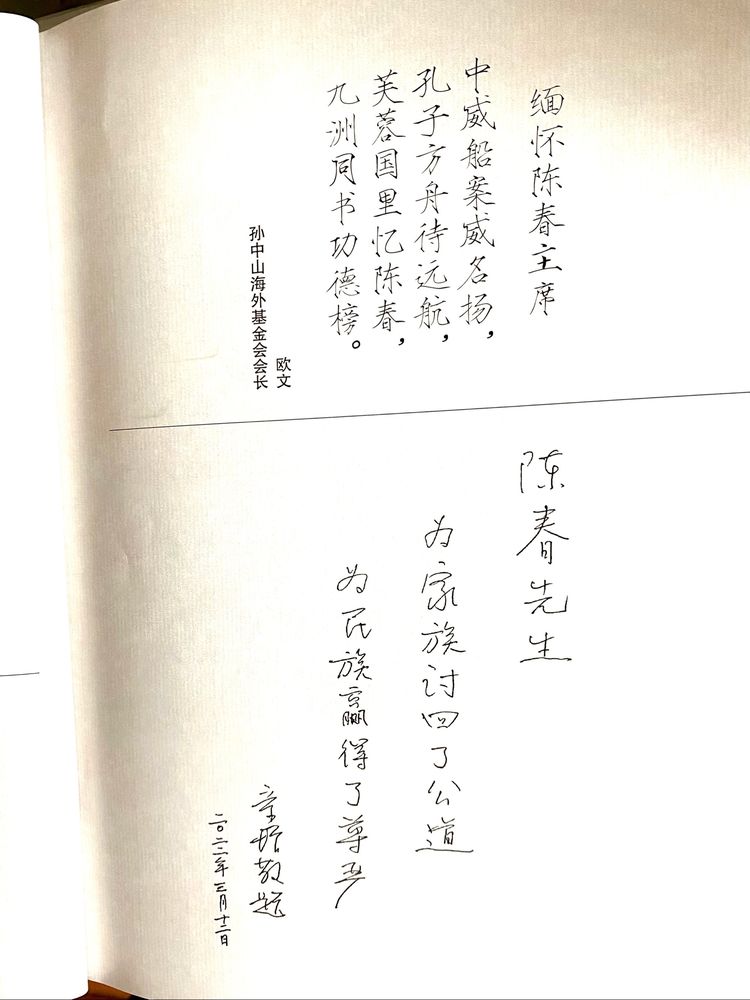 缅怀陈春主席
中威船案威名扬，
孔子方舟待远航，
芙蓉国里忆陈春，
九洲同书功德榜。
欧文
孙中山海外基金会会长
陈春先生
为家族讨回了公道
为民族赢得了尊严
童增敬题
二〇二二年三月十二日